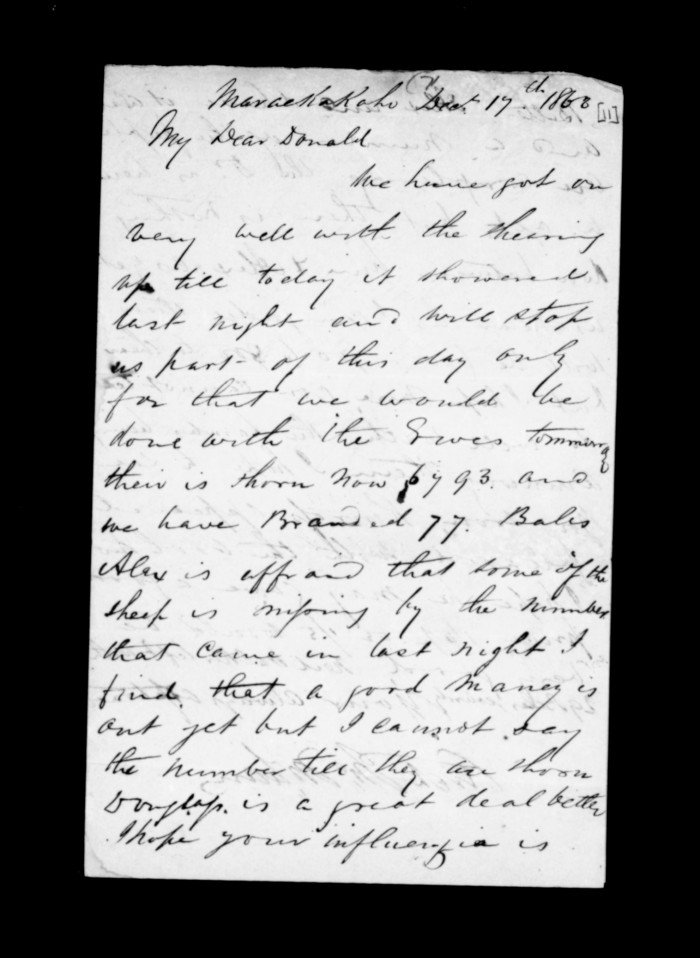 Maraekakaho Decr 17th 1863 [11]
My Dear Donald
We have got on
very well with the shearing
up till today it showered
last night and will stop
us part of this day only
for that we would be
done with the Ewes tommorrow
their is shorn now 6793. and
we have Branded 77. Bales
Alex is affraid that some of the
sheep is missing by the number
that came in last night I
find that a good maney is
out yet but I cannot say
the number till they are shorn
Douglas. is a great deal better
I hope your influenzia is